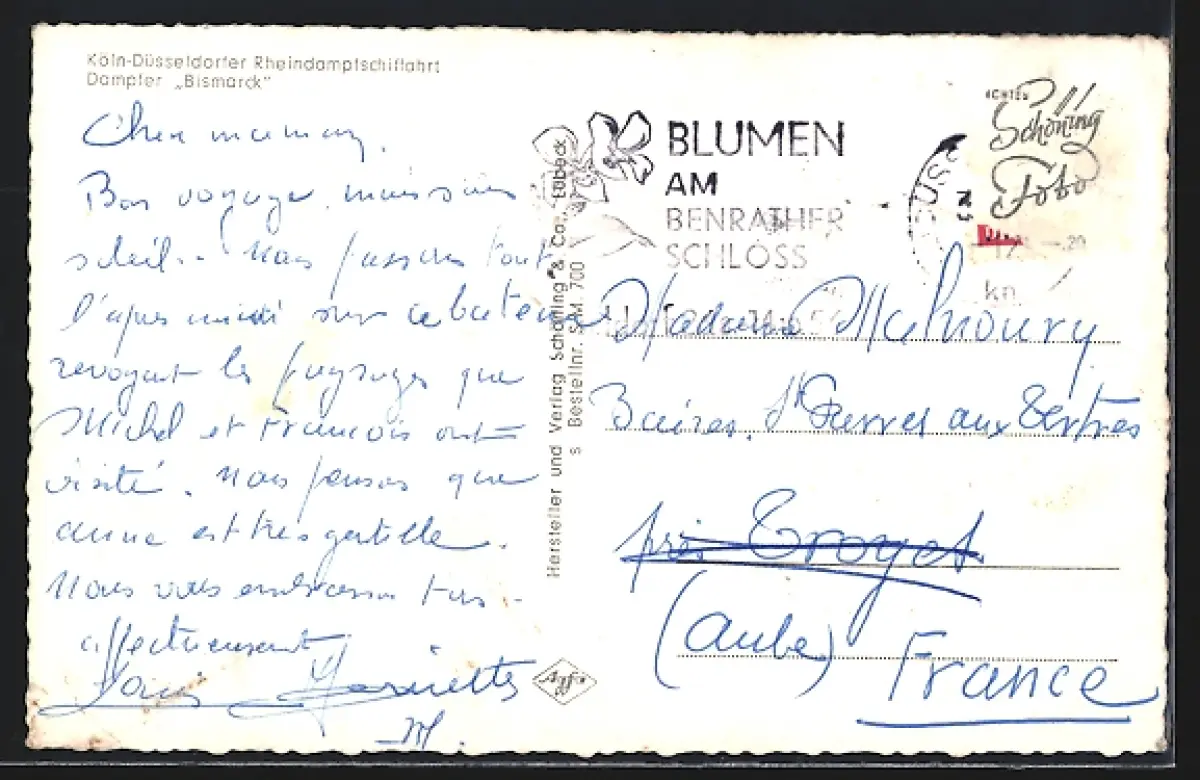 Köln-Düsseldorfer Rheindampfschiffahrt
Dampfer „Bismarck"
Chère maman,
Bon voyage, mais sans
soleil.. Nous passons tout
l'après midi sur ce bateau
revoyant les paysages que
Michel et François ont
visité. Nous pensons que
Anne est très gentille.
Nous vous embrassons tous
affectueusement
Henriette
M.
Hersteller und Verlag Schöning & Co., Lübeck
s Bestellnr. S.M. 700
Agfa
BLUMEN
AM
BENRATHER
SCHLOSS
ECHTES
Schöning
Foto
-20
kn
Madame
St Parres aux Tertres
près Troyes
(Aube)
France